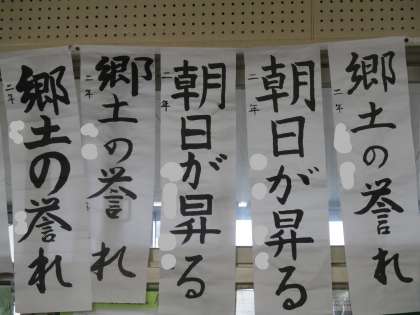 郷土の誉れ
二年
郷土の誉れ
二年
朝日が昇る
二年
朝日が昇る
二年
郷土の誉れ
二年